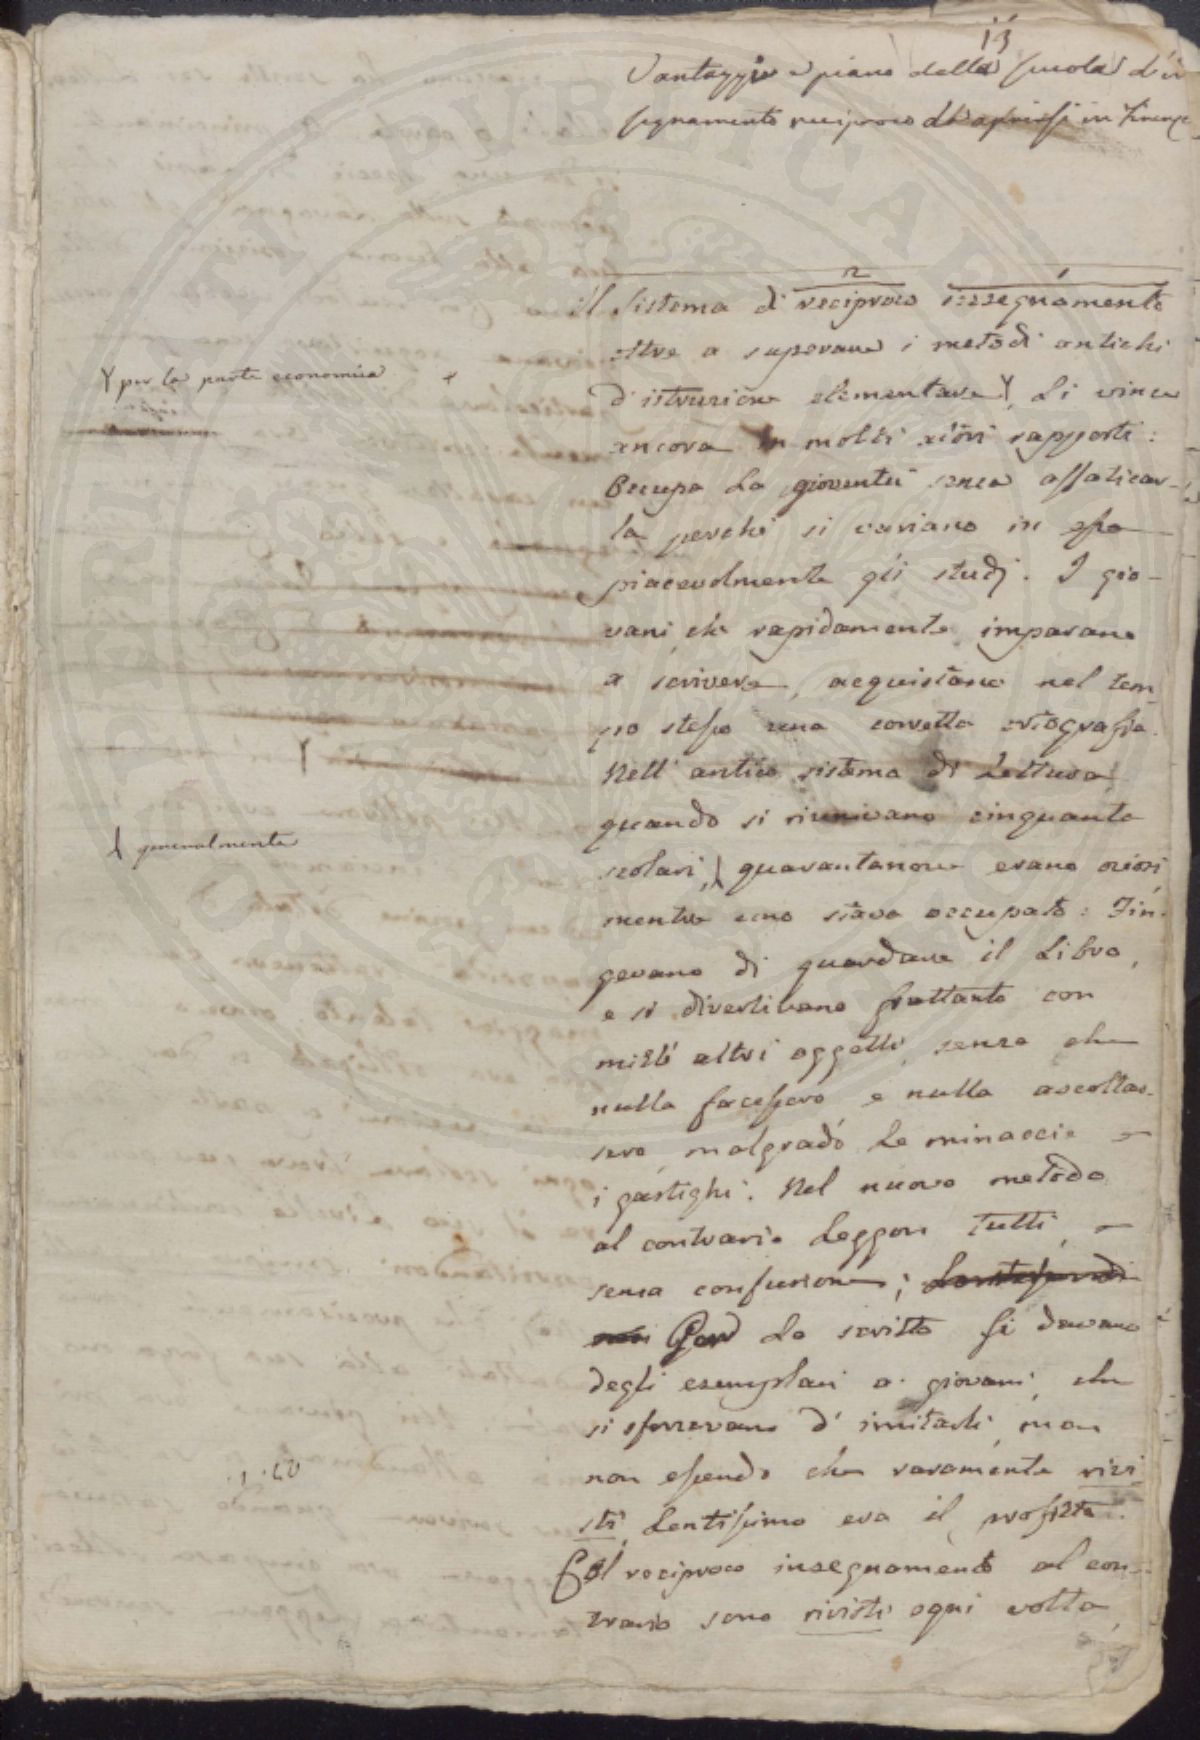 13
Vantaggi e piano della scuola d'in
segnamento reciproco da aprirsi in Firenze
2 1
il sistema di reciproco insegnamento
oltre a superare i metodi antichi
Y per la parte economica
d'istruzione elementare Y, li vince
ancora in molti altri rapporti:
Occupa la gioventù senza affaticar-
la perchè si variano in essa
piacevolmente gli studj. I gio-
vani che rapidamente imparano
a scrivere, acquistano nel tem
po stesso una corretta ortografia.
Nell' antico sistema di Lettura
quando si riunivano cinquanta
generalmente
scolari, quarantanove erano oziosi
mentre uno stava occupato: Fin-
gevano di guardare il Libro,
e si divertivano frattanto con
mille altri oggetti, senza che
nulla facessero, e nulla ascoltas-
sero malgrado le minaccie e
i gastighi. Nel nuovo metodo
al contrario Leggon tutti, e
senza confusione;
Per lo scritto si davano
degli esemplari a' giovani, che
si sforzavano d' imitarli, ma
non essendo che raramente rivi
sti, Lentissimo era il profitto.
Col reciproco insegnamento al con-
trario sono rivisti ogni volta,